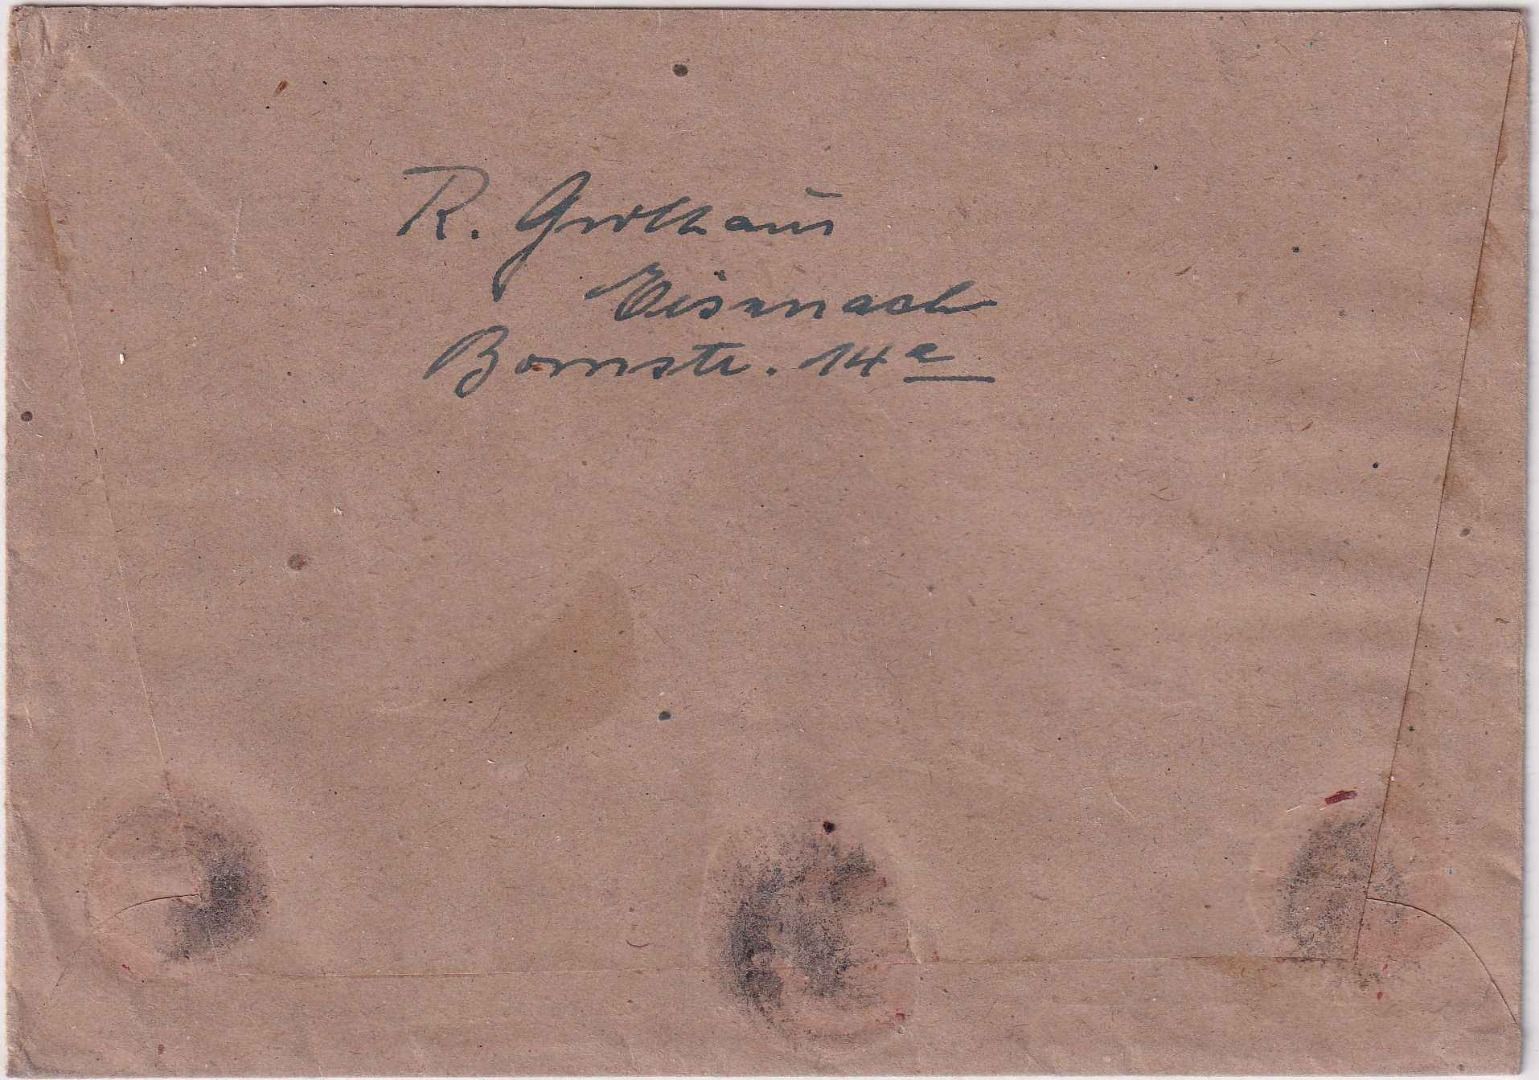 R. Grolhaus
Eisenach
Bornstr. 14a